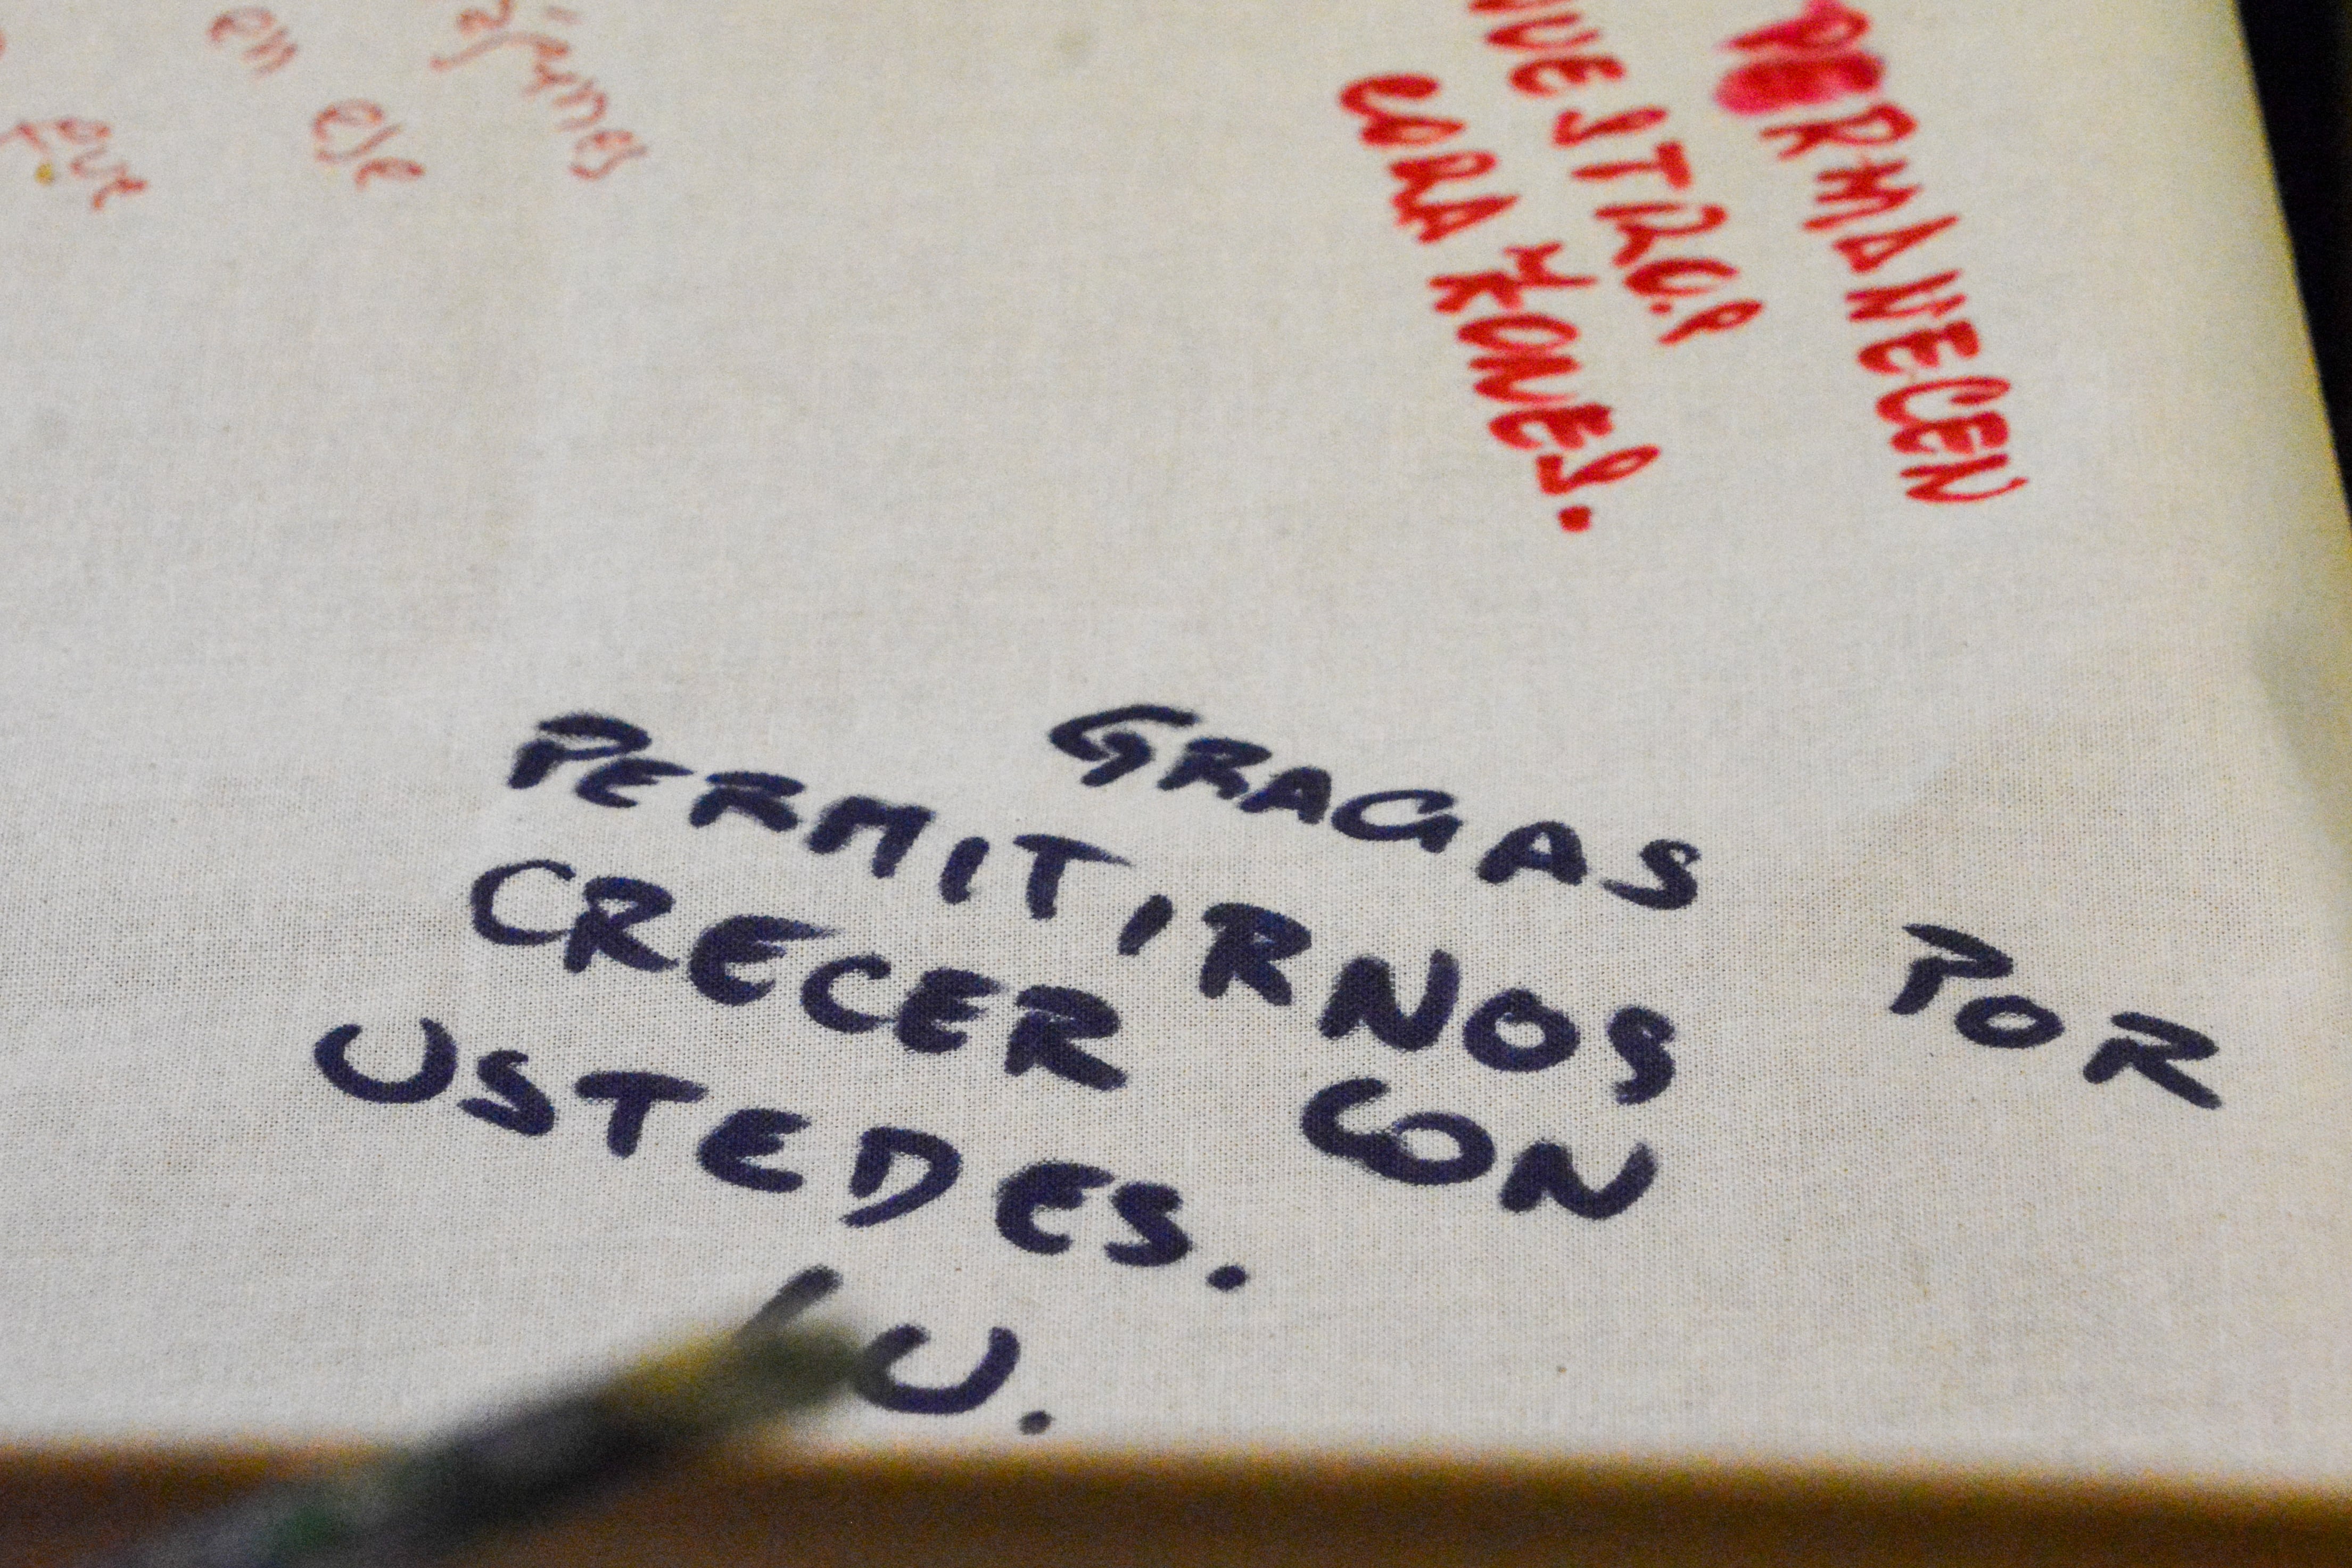 em ese
que
PERMANECEN
NUESTROS
CORAZONES.
GRACIAS POR
PERMITIRNOS
CRECER CON
USTEDES.
U.